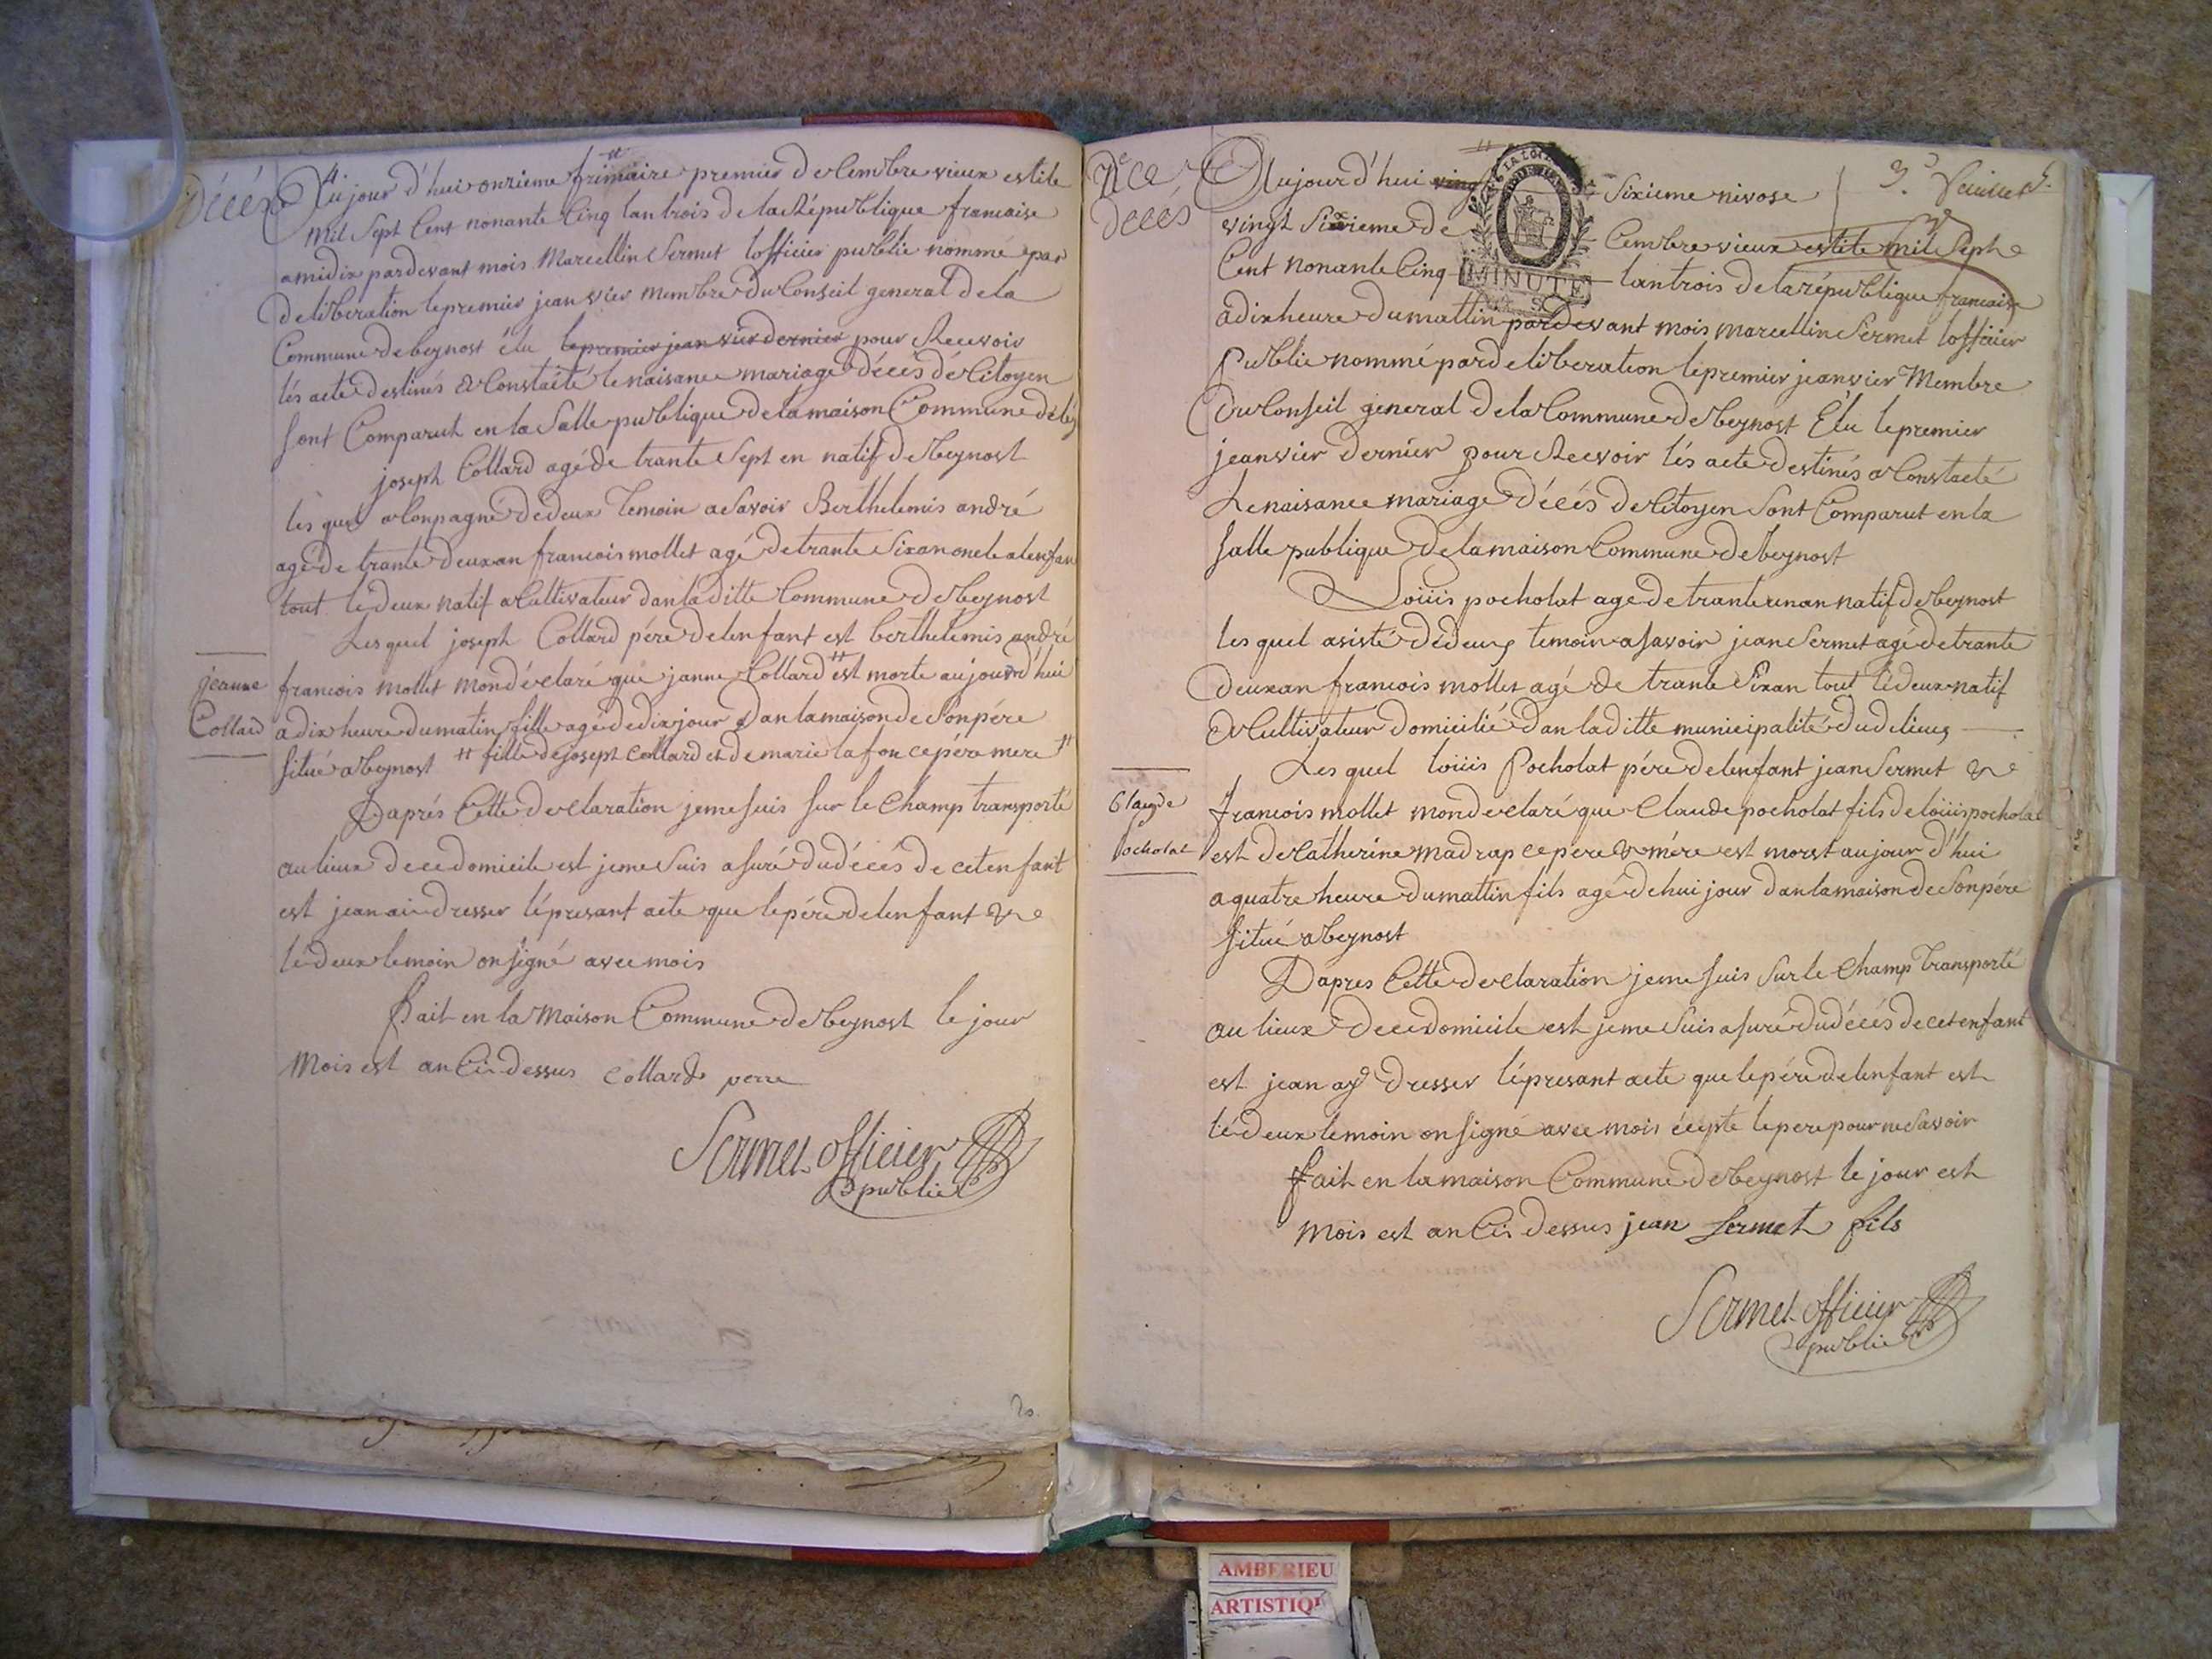 Décés
Aujour d'hui onzieme frimaire premier decembre vieux estile
mil sept cent nonante cinq lan trois de la République francaise
amidix pardevant mois Marcellin Sermet lofficier publie nommé par
deliberation lepremier jeanvier membre du Conseil general dela
Commune debeynost élu lepremier jeanvier dernier pour Recevoir
lés acte destinés a Constaité lenaisance mariage Décés dé Citoyen
sont Comparut en la Salle publique delamaison Commune dé
joseph Collard agé de trante Sept en natif debeynost
les quel aConpagné dedeux temoin asavoir Berthelemis andré
agé de trante deux an francois mollet agé de trante Sixan
tout le deux natif aCultivateur dan laditte Commune debeynost
Lesquel joseph Collard pére delenfant est berthelemis andré
jeanne
Collard
francois mollet mon déclaré que janne Collard # est morte aujourd'hui
a dix heure dumatin fille agé dedixjour dan lamaison de Sonpére
situé abeynost # fille de joseph collard et de marie lafon ce pére mere #
Daprés Cette declaration jeme suis sur le Champ transporté
au lieux de ce domicile est jeme suis asuré dudécés de cet enfant
est jean ai dresser lépresant acte que lepére delenfant &
lé deux temoin on signé avec mois
Fait en la maison Commune debeynost le jour
mois est an Ci dessus collard perre
Sermet officier
publie
20.
décés
Aujourd'hui ving Sixieme nivose
3.e feuillet
vingt Sixieme de Cembre vieux estile mil Sept
Cent nonante Cinq lan trois de la république francaise
MINUTE
adix heure dumattin pardevant mois marcellin Sermet lofficier
Publie nommé par deliberation lepremier jeanvier Membre
du Conseil general dela Commune debeynost Elu lepremier
jeanvier dernier pour Recevoir lés acte destinés a Constacté
Lenaisance mariage décés de Citoyen sont Comparut en la
salle publique delamaison Commune debeynost
Loüis pocholat agé de trante un an natif debeynost
les quel asisté dédeux temoin asavoir jean Sermet agé de trante
deux an francois mollet agé de trante Sixan tout lédeux natif
& Cultivateur domicilié dan laditte municipalité dudilieux
Les quel loüis Pocholat pére delenfant jean Sermet &
Claude
pocholat
francois mollet mon déclaré que Claude pocholat fils de loüis pocholat
est de Catherine madrap ce pere & mére est morst aujour d'hui
a quatre heure dumattin fils agé de hui jour dan lamaison de Sonpére
situé abeynost
Dapres Cette declaration jeme suis Sur le Champ transporté
au lieux de ce domicile est jeme suis asuré dudécés de cet enfant
est jean ay dresser lépresant acte que lepére delenfant est
lé deux temoin on signé avec mois écepte lepere pour ne Savoir
fait en la maison Commune debeynost le jour est
mois est an Ci dessus jean sermet fils
Sermet officier
publie
AMBERIEU
ARTISTIQ